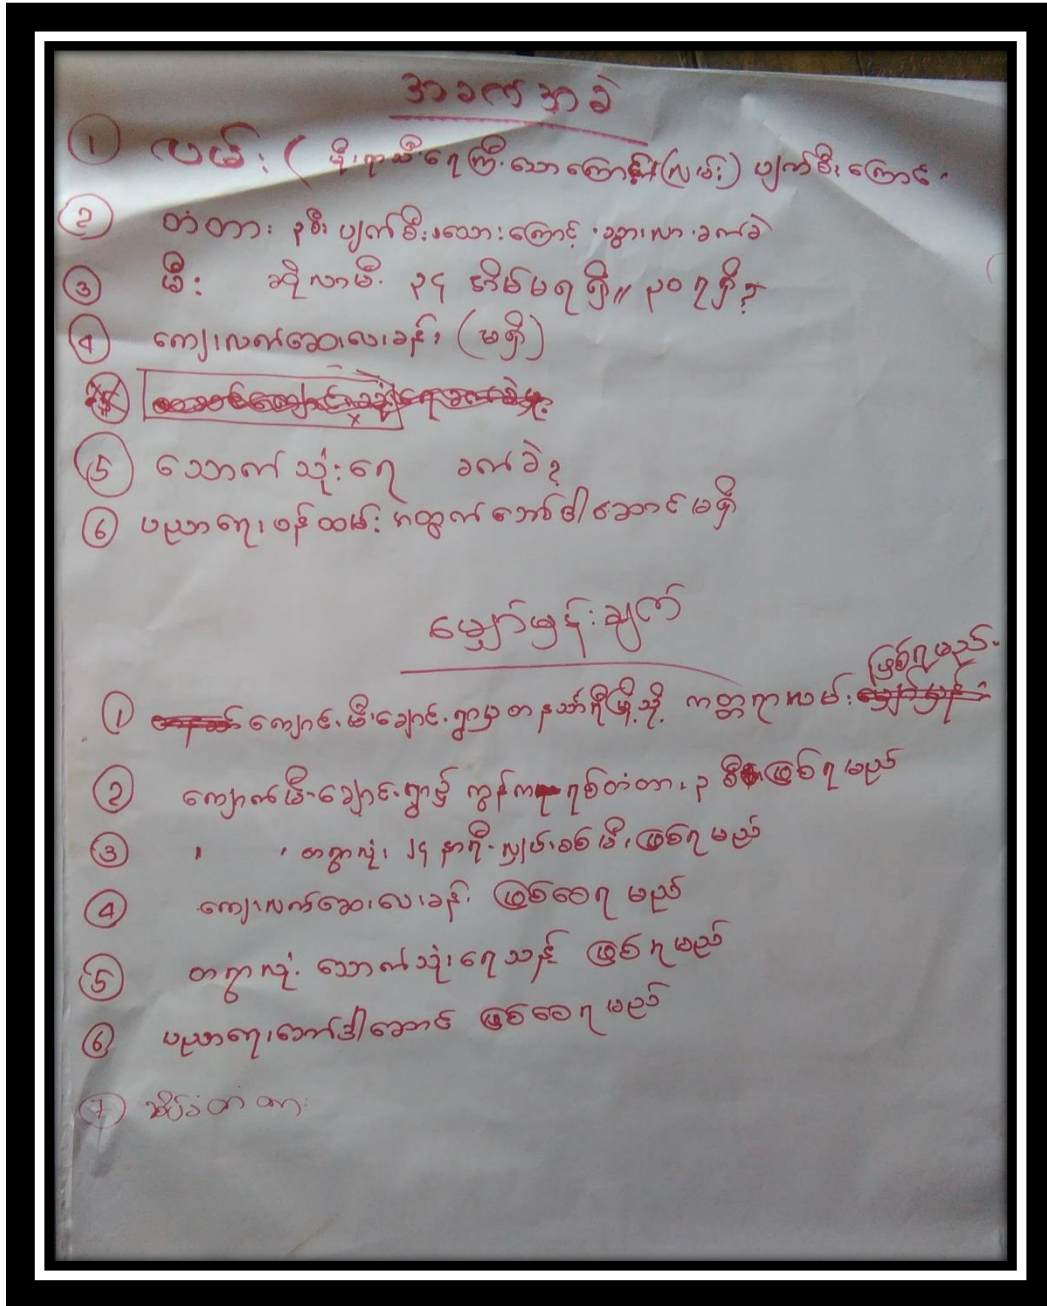 အခက်အခဲ
① လမ်း (မိုးရာသီရေကြီးသောကြောင့် (လမ်း) ပျက်စီးကြောင်း
② တံတား ၃စီး ပျက်စီးသောကြောင့် သွားလာခက်ခဲ
③ မီး ဆိုလာမီး ၃၄ အိမ်မရရှိ။ ၃၀ ရရှိ?
④ ကျေးလက်ဆေးပေးခန်း (မရှိ)
⑤ သောက်သုံးရေ ခက်ခဲ?
⑥ ပညာရေးဝန်ထမ်း အတွက် ဘော်ဒါဆောင် မရှိ
မျှော်မှန်းချက်
① ကျောင်းမီးချောင်းရွာမှ တနင်္သာရီမြို့သို့ ကတ္တရာလမ်း ဖြစ်ရမည်။
② ကျောက်မီးချောင်းရွာ၌ ကွန်ကရစ်တံတား ၃ စီး ဖြစ်ရမည်
③ " " တရွာလုံး ၂၄ နာရီ လျှပ်စစ်မီး ဖြစ်ရမည်
④ ကျေးလက်ဆေးပေးခန်း ဖြစ်စေရမည်
⑤ တရွာလုံး သောက်သုံးရေသန့် ဖြစ်ရမည်
⑥ ပညာရေးဘော်ဒါဆောင် ဖြစ်စေရမည်
⑦